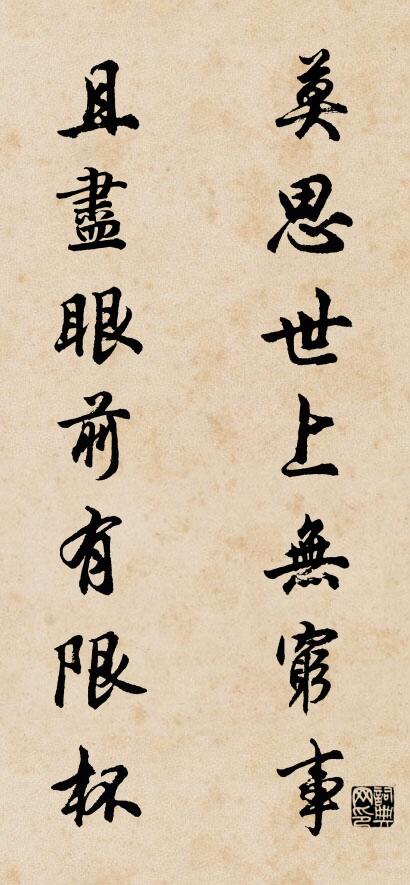 莫思世上無窮事
且盡眼前有限杯
詞典网印